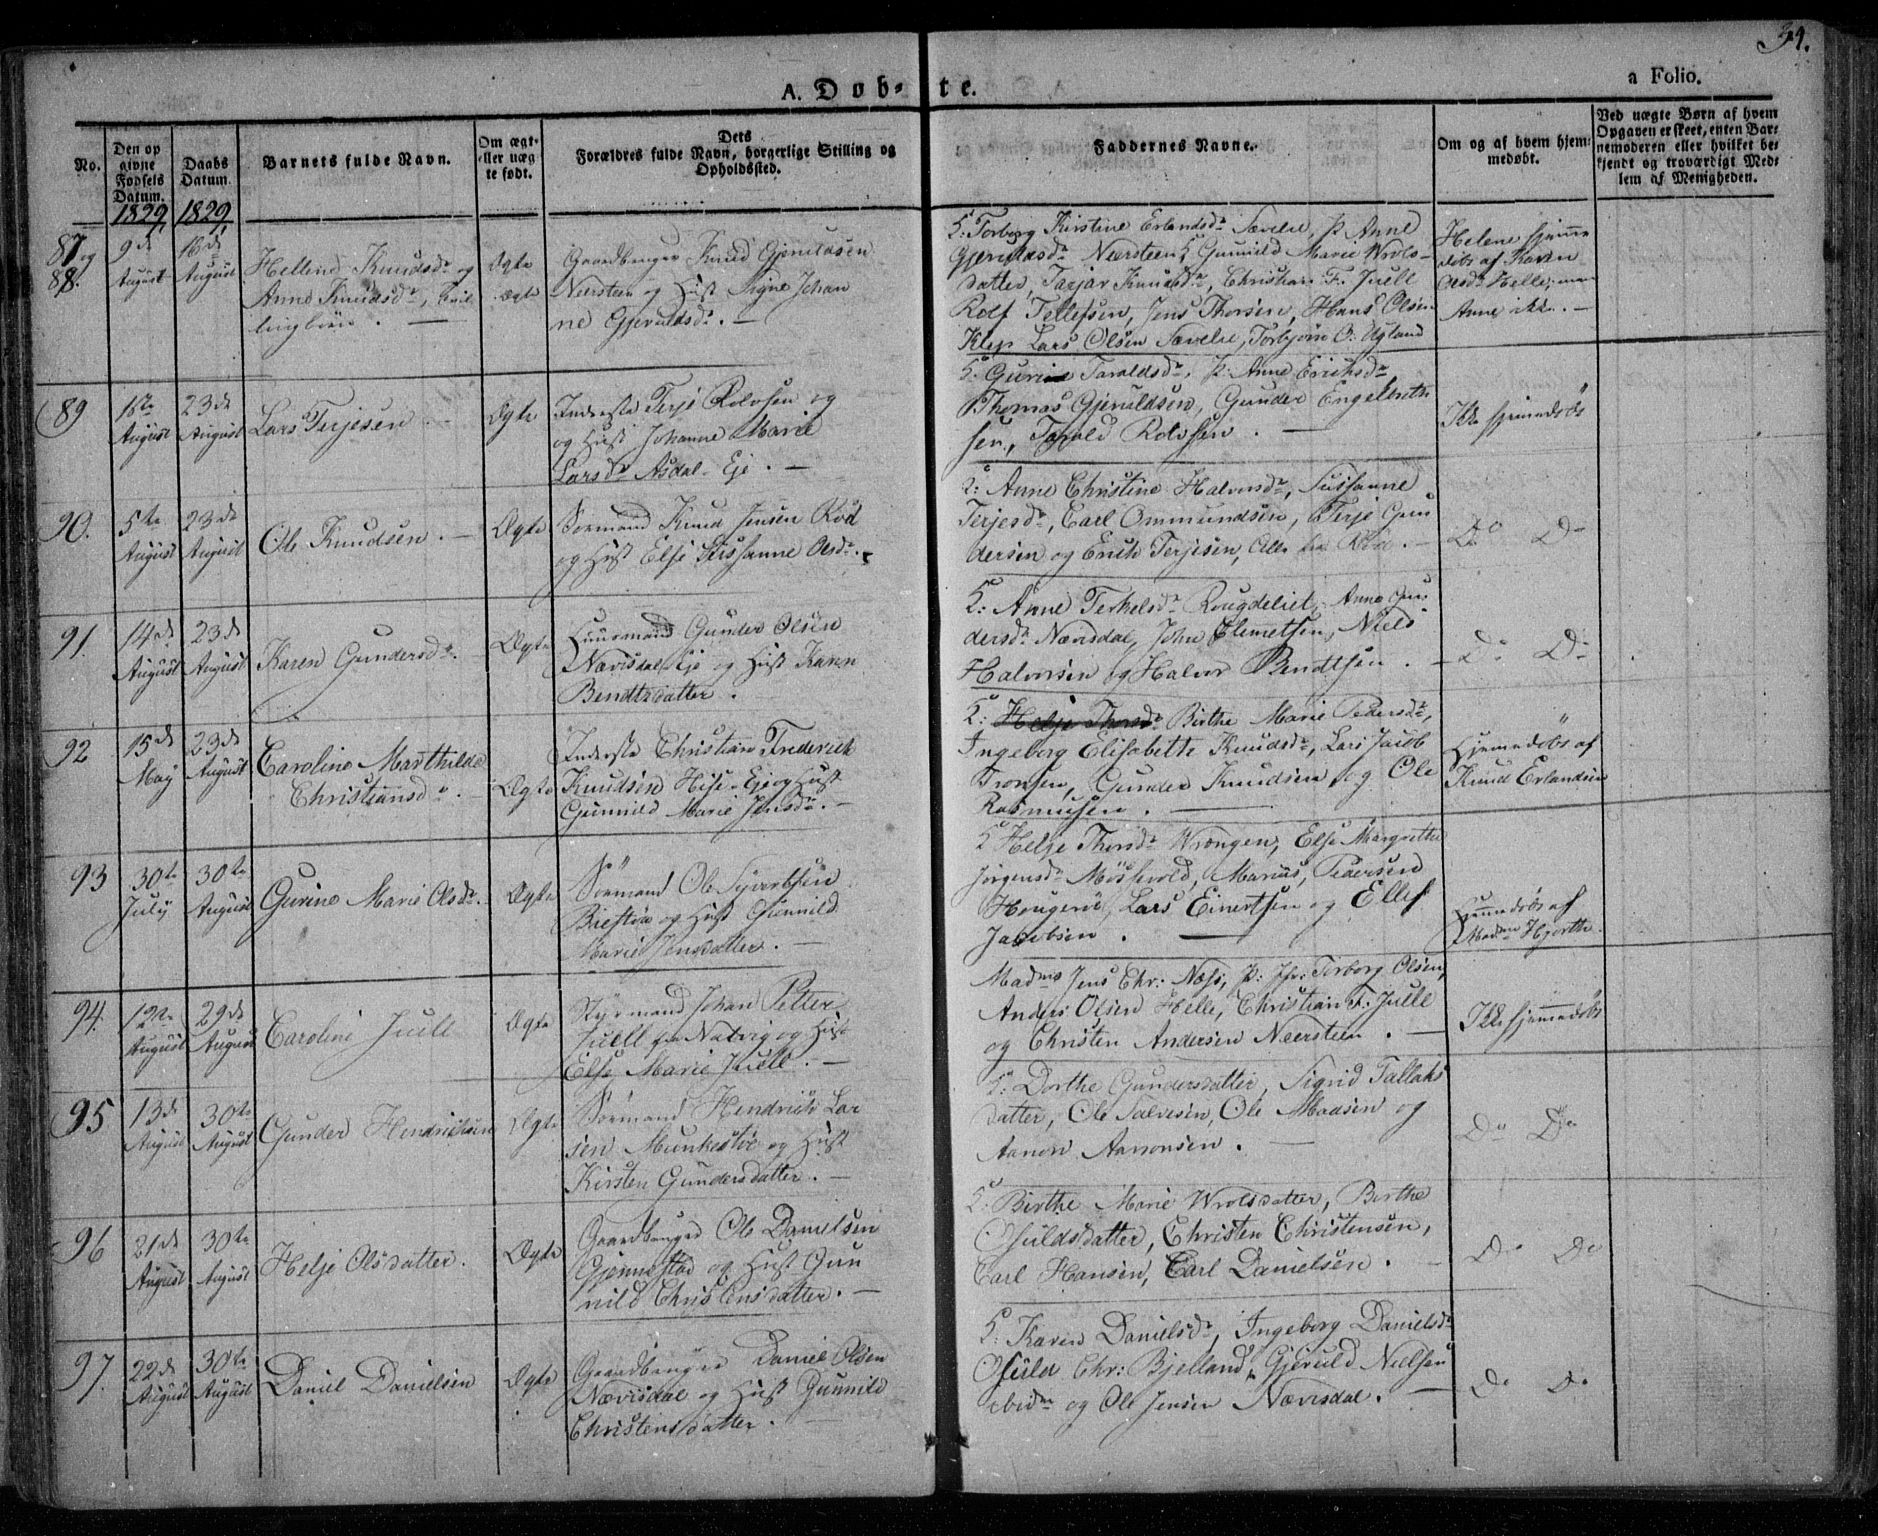 34.
A. Døb-te.
a Folio.
No.
Den op
givne
Fødsels
Datum.
1829,
Daabs
Datum.
1829,
Barnets fulde Navn.
Om ægt-
eller uæg-
te født.
Dets
Forældres fulde Navn, borgerlige Stilling og
Opholdssted.
Faddernes Navne.
Om og af hvem hjem-
medøbt.
Ved uægte Børn af hvem
Opgaven er skeet, enten Bar-
nemoderen eller hvilket be-
kjendt og troværdigt Med-
lem af Menigheden.
87 og
88.
9de
August
16de
August
Hellene Knudsdr og
Anne Knudsdr, Tvil
lingbörn. —
Ægte
Ægte
Gaardbruger Knud Gjeruldsen
Neersteen og Hust Signe Johan
ne Gjeruldsdr. —
S: Torborg Kirstine Erlandsdr Sævelie, p: Anne
Gjeruldsdr Neersteen, Gunnild Marie Wrols-
datter, Tarjar Knudsdr, Christian F. Juell
Rolf Tellefsen, Jens Thorsen, Hans Olsen
Klep Lars Olsen Sævelie, Torbjörn O. Ugland
Helene hjemme
döbt af Karen
Olsdr Helle, men
Anne ikke. —
89
16te
August
23de
August
Lars Terjesen. —
Ægte
Inderste Terje Rolvsen og
og Hust Johanne Marie
Larsdr Asdal-Eje. —
S: Gurine Taraldsdr, p: Anne Erichsdr
Thomas Gjeruldsen, Gunder Engelbreth
sen, Tarald Rolvsen. —
Ikke hjemmedöbt
90.
5te
August
23de
August
Ole Knudsen. —
Ægte
Sörmand Knud Jensen Röd
og Hust Else Sussanne Olsdr. —
S: Anne Christine Halvorsdr, Sussanne
Terjesdr, Carl Ommundsen, Terje Gun
dersen og Erich Terjesen, Alle fra Röd. —
Do Do
91.
14de
August
23de
August
Karen Gundersdr.
Ægte
Huusmand Gunder Olsen
Nævisdal Eje og Hust Karen
Bendtsdatter.
S: Anne Terkelsdr Rougdeliet, Anne Gun
dersdr Nævisdal, John Clemetsen, Niels
Halvorsen og Halvor Bendtsen. —
Do Do
92
15de
May
23de
August
Caroline Marthilde
Christiansdr. —
Ægte
Inderste Christian Frederich
Knudsen Hise-Eje og Hust
Gunnild Marie Jensdr. —
S: Helje Thorsdr Birthe Marie Pedersdr,
Ingeborg Elisabette Knudsdr, Lars Jacob
Tronsen, Gunder Knudsen og Ole
Rasmussen. —
Hjemmedöbt af
Knud Erlandsen
93
30te
July
30te
August
Gurine Marie Olsdr.
Ægte
Sörmand Ole Syvertsen
Biestöe og Hust Gunnild
Marie Jensdatter. —
S Helje Thorsdr Wrængen, Else Margrethe
Jörgensdr Möskevold, Marius Pedersen
Hougene, Lars Einertsen og Ellef
Jacobsen. —
Hjemmedöbt af
Madme Hjorthe.
94.
12te
August
29de
August
Caroline Juell
Ægte
Styrmand Johan Petter
Juell fra Natvig og Hust
Else Marie Juell. —
Madme Jens Chr: Næss, p: Jfr: Torborg Olsen,
Anders Olsen Helle, Christian F. Juell
og Christen Andersen Neersteen. —
Ikke hjemmedöbt
95
13de
August
30te
August
Gunder Hendrichsen
Ægte
Sörmand Hendrich Lar
sen Munkestöe og Hust
Kirsten Gundersdatter. —
S: Dorthe Gundersdatter, Sigrid Tallaks
datter, Ole Salvesen, Ole Madsen og
Aanon Aanonsen. —
Do Do
96
21de
August
30te
August
Helje Olsdatter.
Ægte
Gaardbruger Ole Danielsen
Gjennestad og Hust Gun
nild Christensdatter. —
S: Birthe Marie Wrolsdatter, Birthe
Osuldsdatter, Christen Christensen,
Carl Hansen, Carl Danielsen. —
Do Do
97.
22de
August
30te
August
Daniel Danielsen
Ægte
Gaardbruger Daniel Olsen
Nævisdal og Hust Gunnild
Christensdatter. —
S: Karen Danielsdr, Ingeborg Danielsdr
Osuld Chr: Bjelland, Gjeruld Nielsen
ibidm og Ole Jensen Nævisdal. —
Do Do